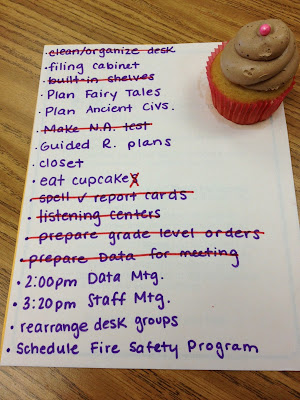 · clean/organize desk
· filing cabinet
· built-in shelves
· Plan Fairy Tales
· Plan Ancient Civs.
· Make N.A. test
· Guided R. plans
· closet
· eat cupcake
· spell ✓ report cards
· listening centers
· prepare grade level orders
· prepare Data for meeting
· 2:00pm Data Mtg.
· 3:20pm Staff Mtg.
· rearrange desk groups
· Schedule Fire Safety Program